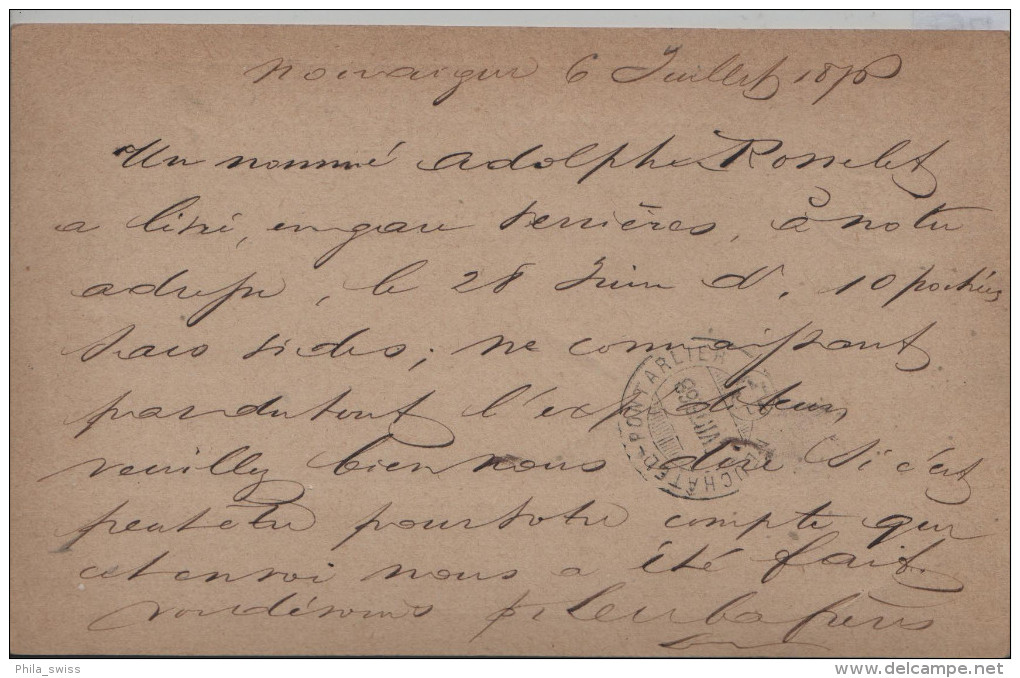 Noiraigue 6 Juillet 1898
Un nommé Adolphe Rosselet
a livré, en gare Verrières, à notre
adresse, le 28 Juin d', 10
sacs vides; ne connaissant
pas du tout l'expéditeur,
veuillez bien nous dire si c'est
peut être pour votre compte que
cet envoi nous a été fait.
frères
PONTARLIER
NEUCHATEL
VII 98
Phila_swiss
http://www.delcampe.net